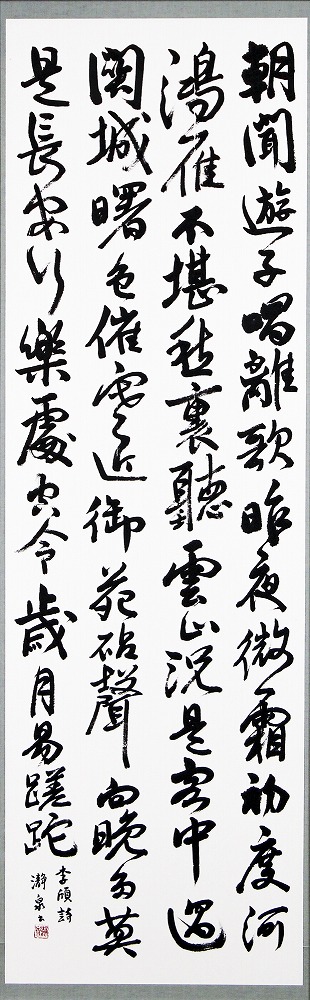 朝聞遊子唱離歌昨夜微霜初度河
鴻雁不堪愁裏聽雲山況是客中過
關城曙色催寒近御苑砧聲向晚多莫
是長安行樂處空令歲月易蹉跎
李頎詩
瀞泉書